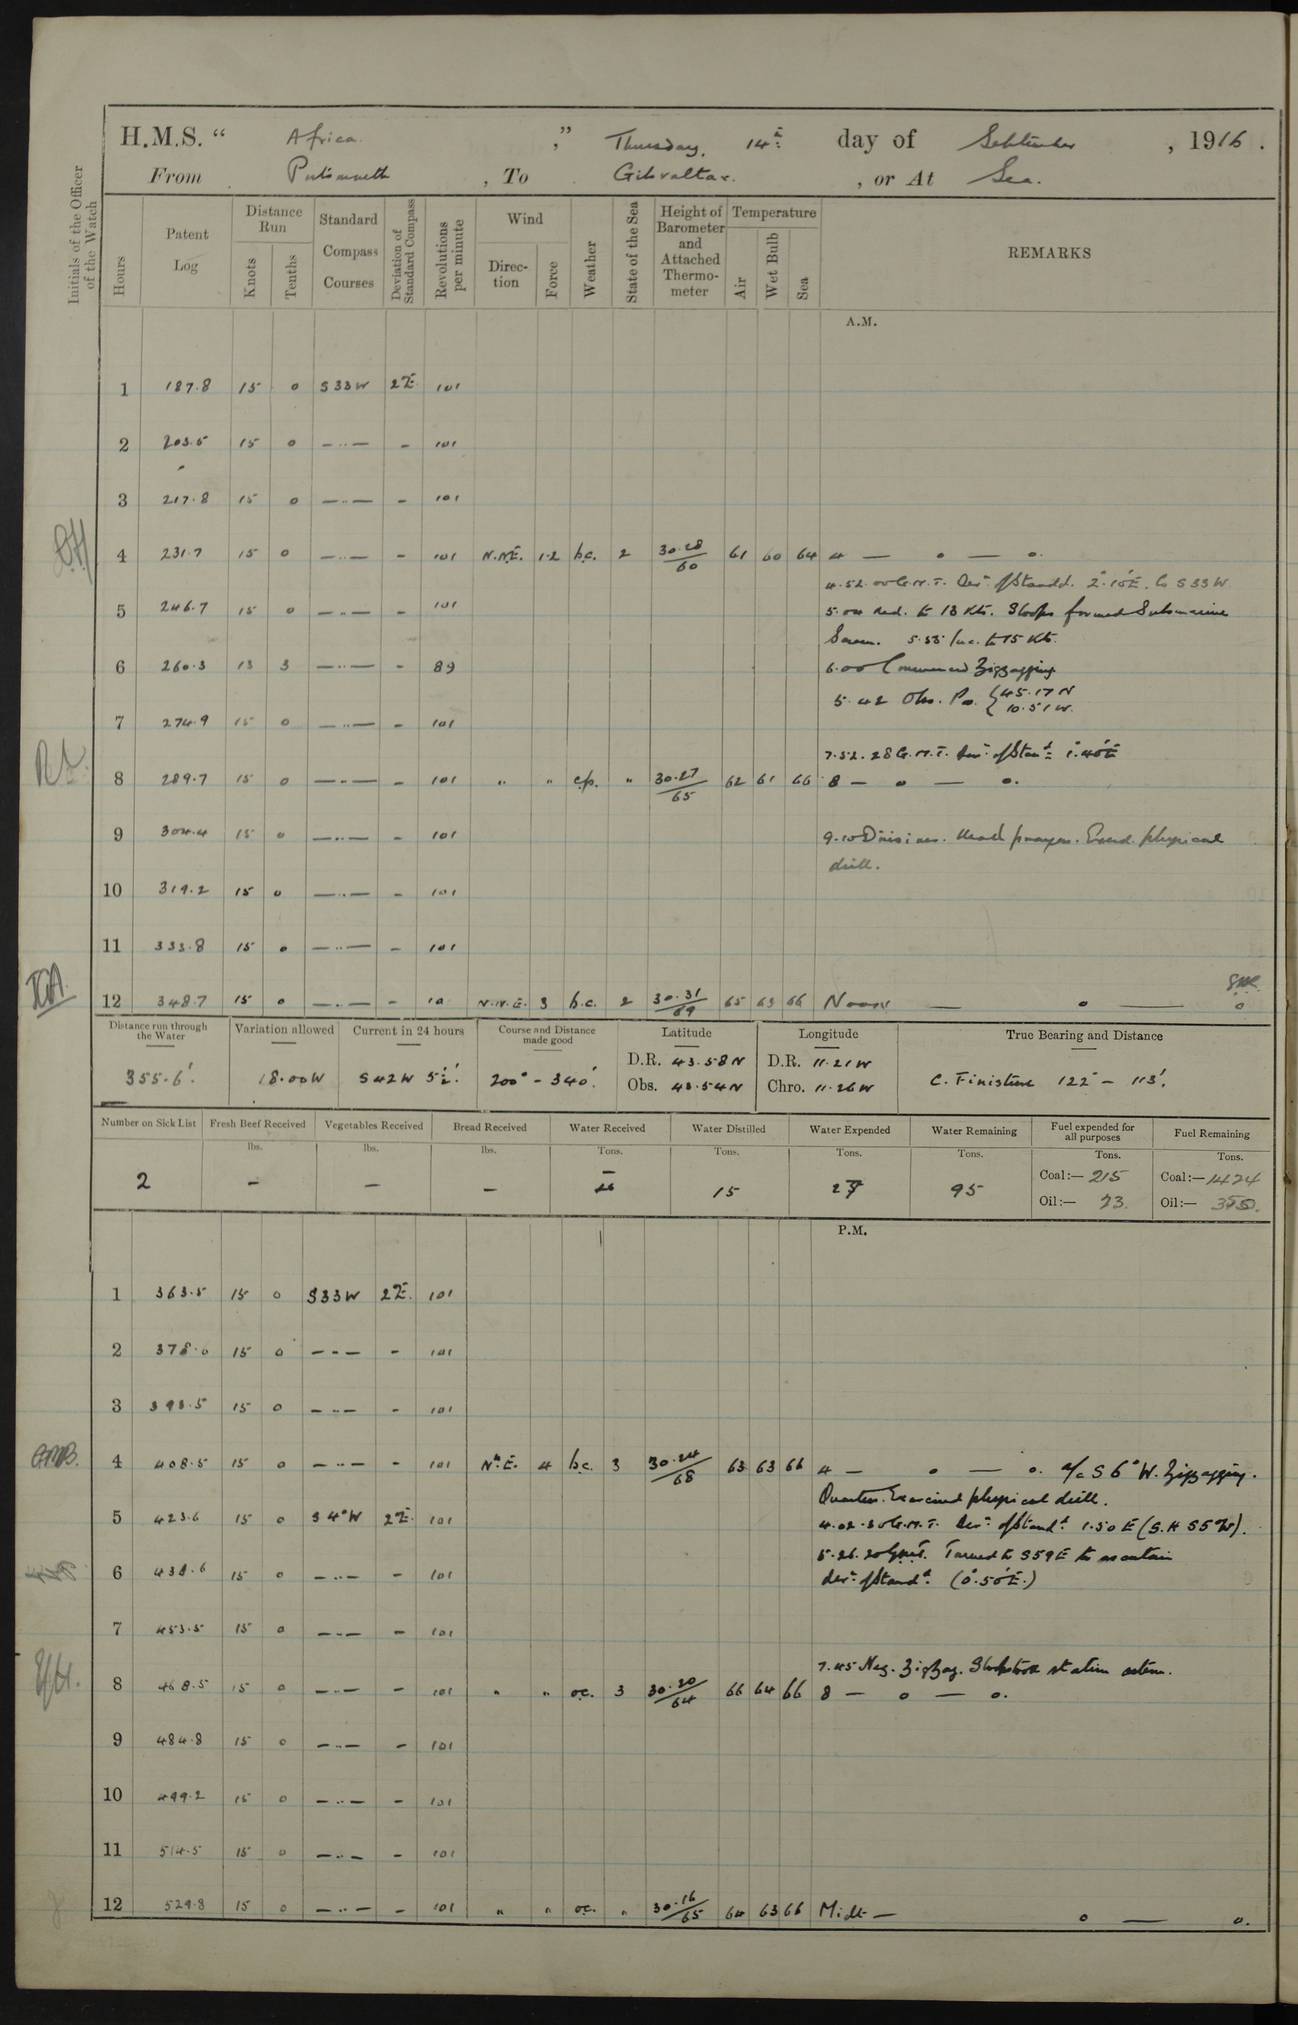 H.M.S. “ Africa ,” Thursday, 14th day of September , 1916 .
From Portsmouth , To Gibraltar. , or At Sea.
Initials of the Officer of the Watch
Hours Patent Log Distance Run Knots Tenths Standard Compass Courses Deviation of Standard Compass Revolutions per minute Wind Direc-tion Force Weather State of the Sea Height of Barometer and Attached Thermo-meter Temperature Air Wet Bulb Sea REMARKS
A.M.
1 187.8 15 0 S33W 2E 101
2 203.5 15 0 — .. — - 101
3 217.8 15 0 — .. — - 101
4 231.7 15 0 — .. — - 101 N.N.E. 1.2 b.c. 2 30.28/60 61 60 64 4 — o — o.
4.52.00 G.M.T. Devn of Standd. 2°.10'E. Co S33W
5 246.7 15 0 — .. — - 101 5.04 Red. to 13 Kts. Sloops formed Submarine
Screen. 5.55 Inc. to 15 Kts.
6 260.3 13 3 — .. — - 89 6.00 Commenced Zigzagging
5.42 Obs. Pos. { 45.17 N
10.51 W.
7 274.9 15 0 — .. — - 101
7.52.28 G.M.T. Devn of Standd 1°.40'E
8 289.7 15 0 — .. — - 101 " " c.p. " 30.27/65 62 61 66 8 — o — o.
9 304.4 15 0 — .. — - 101 9.10 Divisions. Read prayers. Exercd. physical
drill.
10 319.2 15 0 — .. — - 101
11 333.8 15 0 — .. — - 101
12 348.7 15 0 — .. — - 10 N.N.E. 3 b.c. 2 30.31/69 65 63 66 Noon — o — o
Distance run through the Water Variation allowed Current in 24 hours Course and Distance made good Latitude Longitude True Bearing and Distance
355.6'. 18.00W S42W 5½'. 200° - 340'. D.R. 43.58N D.R. 11.21W C. Finisterre 122° - 113'.
Obs. 43.54N Chro. 11.26W
Number on Sick List Fresh Beef Received Vegetables Received Bread Received Water Received Water Distilled Water Expended Water Remaining Fuel expended for all purposes Fuel Remaining
lbs. lbs. lbs. Tons. Tons. Tons. Tons. Tons. Tons.
2 - - - - 15 27 95 Coal:— 215 Coal:— 1424
Oil:— 23. Oil:— 350.
P.M.
1 363.5 15 0 S33W 2E. 101
2 378.0 15 0 — - — - 101
3 393.5 15 0 — .. — - 101
4 408.5 15 0 — .. — - 101 N.E. 4 b.c. 3 30.24/68 63 63 66 4 — o — o. A/c S 6° W. Zigzagging.
Quarters. Exercised physical drill.
5 423.6 15 0 S 4° W 2E. 101 4.02.30 G.M.T. Devn of Standd. 1.50 E (S.H S5W).
5.26.20 G.M.T. Turned to S59E to ascertain
6 438.6 15 0 — .. — - 101 devn of Standd. (0°.50'E.)
7 453.5 15 0 — .. — - 101
7.45 Neg. ZigZag. Sloops took station astern.
8 468.5 15 0 — .. — - 101 " " o.c. 3 30.20/64 66 64 66 8 — o — o.
9 484.8 15 0 — .. — - 101
10 499.2 15 0 — .. — - 101
11 514.5 15 0 — .. — - 101
12 529.8 15 0 — .. — - 101 " " o.c. " 30.16/65 64 63 66 Midt — o — o.